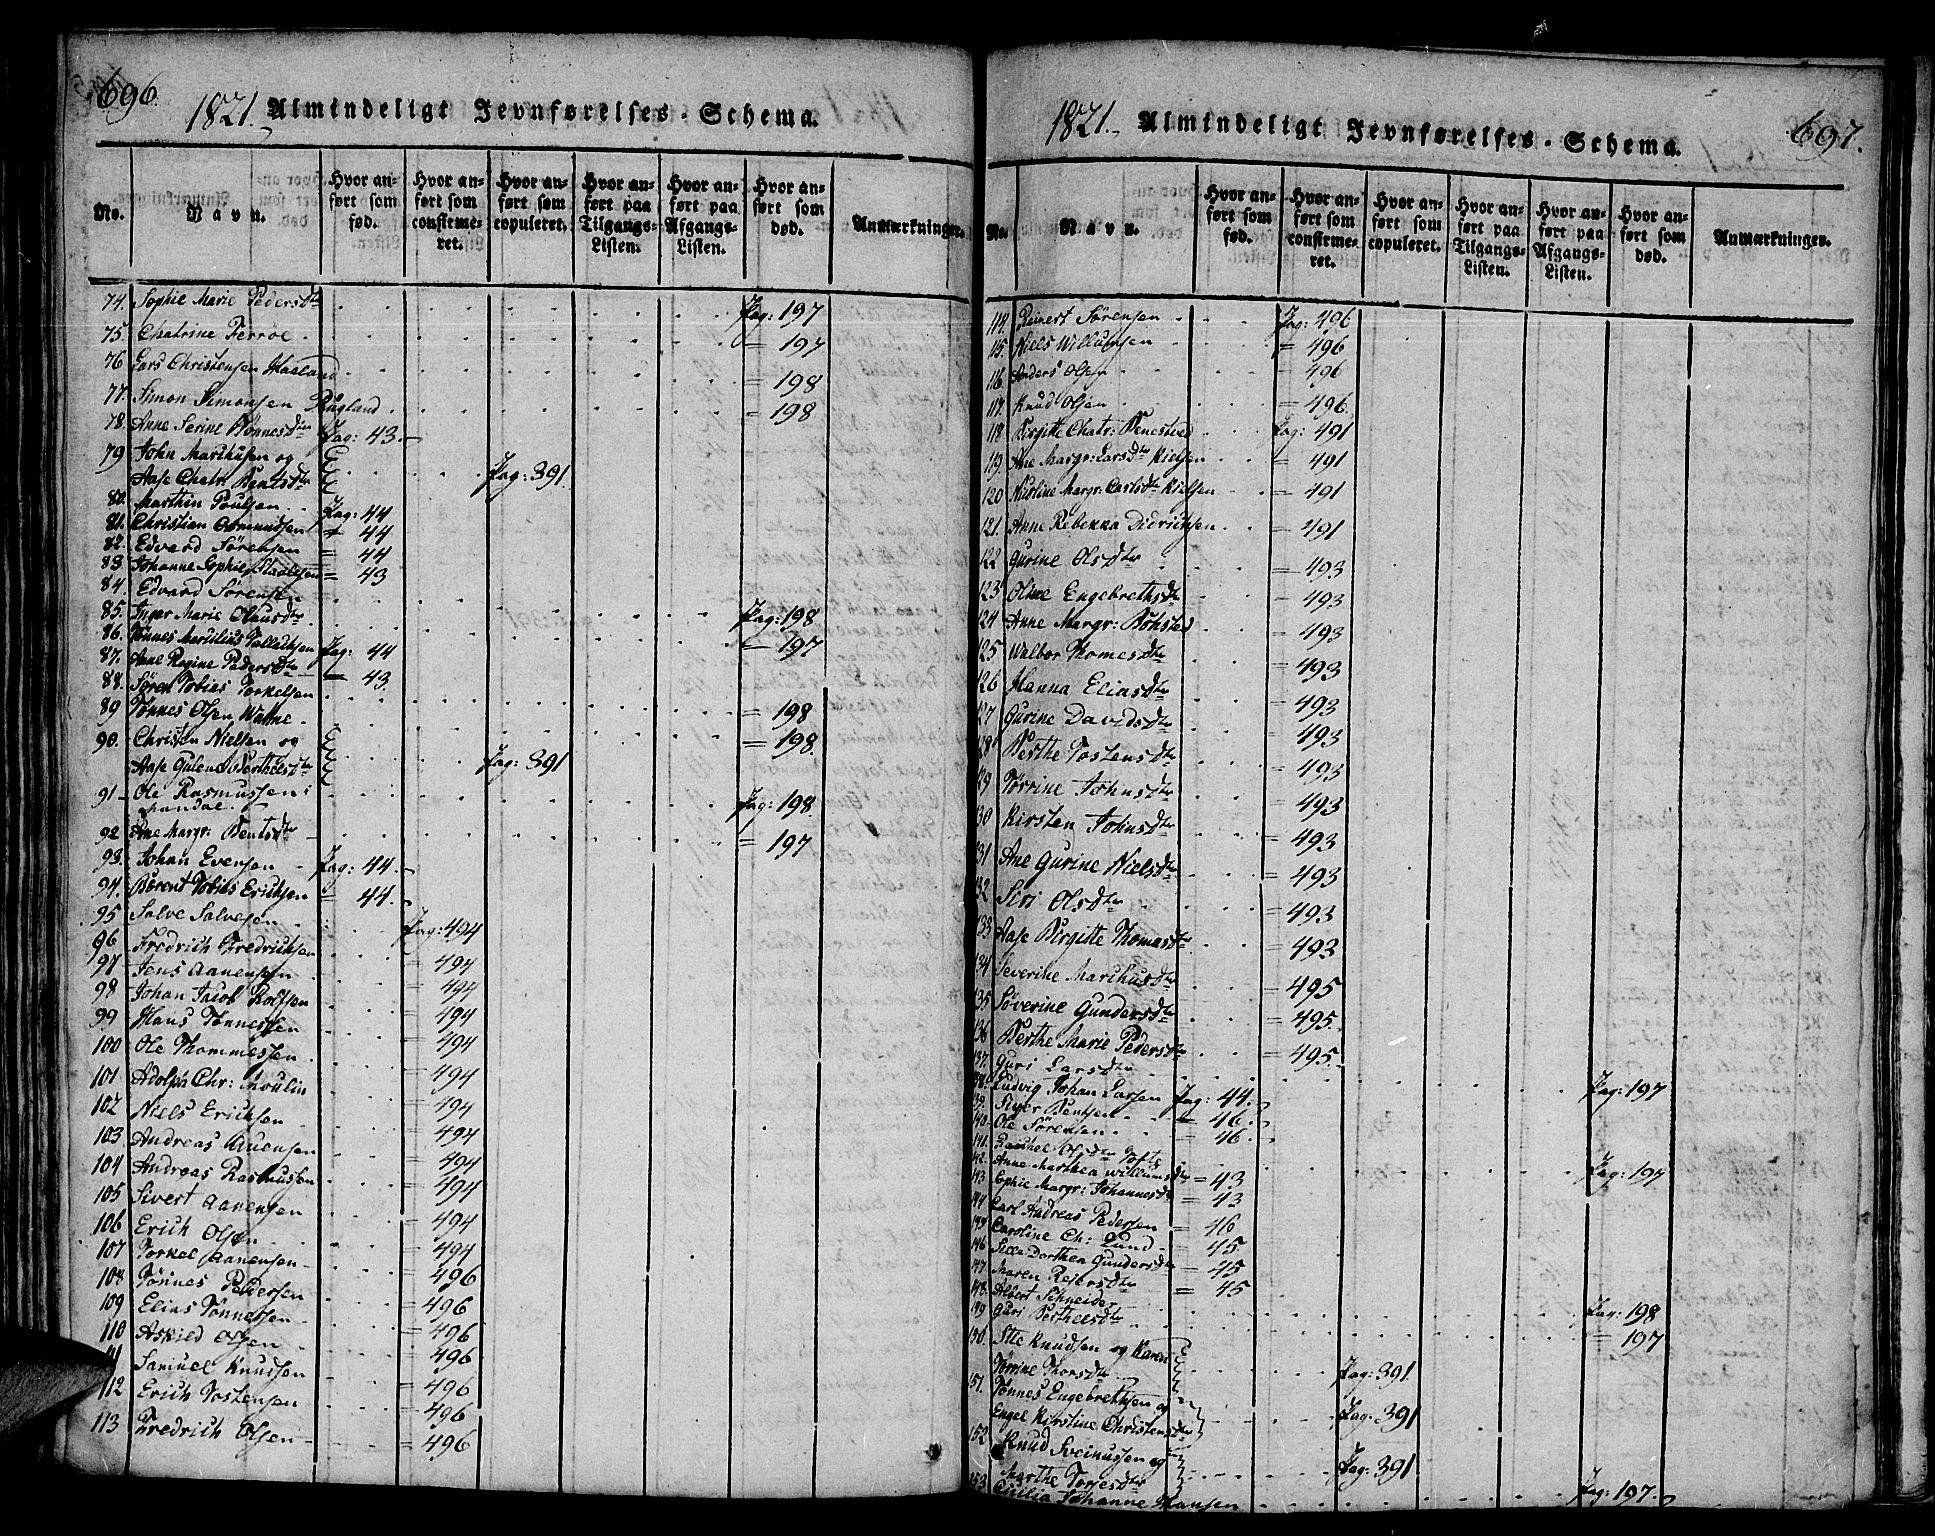 696.
1821. Almindeligt Jevnførelses-Schema.
No.
Navn.
Hvor anført som fød.
Hvor anført som confirmeret.
Hvor anført som copuleret.
Hvor anført paa Tilgangs-Listen.
Hvor anført paa Afgangs-Listen.
Hvor anført som død.
Anmærkninger.
74. Sophie Marie Pedersdtr Pag: 197
75. Chatrine Ferroe = 197
76 Lars Christensen Haaland = 198
77. Simon Simonsen Røgland = 198
78. Anne Serine Tønnesdtr Pag: 43.
79 John Marchusen og
Aase Chatr: Bentsdtr Pag: 391.
80. Marthin Poulsen Pag: 44
81. Christian Osmundsen = 44
82. Edvard Sørensen = 44
83 Johanne Sophie Staalesen = 43
84. Edvard Sørensen Pag: 198
85. Inger Marie Olausdtr = 197
86. Tønnes Marcilius Tallachsen Pag: 44
87. Ane Regine Pedersdtr = 43.
88. Søren Tobias Torkelsen = 198
89 Tønnes Olsen Watne = 198
90. Christen Nielsen og
Aase Gulena Berthelsdtr Pag: 391
91 Ole Rasmussen i
Mandal. Pag: 198
92 Ane Margr: Bentsdtr = 197
93. Johan Evensen Pag: 44.
94. Berent Tobias Erichsen = 44.
95 Salve Salvesen Pag: 494
96 Fredrich Fredrichsen = 494
97 Jens Aanensen = 494
98 Johan Jacob Rolfsen = 494
99 Hans Tønnessen = 494
100 Ole Thommessen = 494
101 Adolph Chr: Moulin = 494
102 Niels Erichsen = 494
103 Andreas Auensen = 494
104 Andreas Rasmussen = 494
105 Sivert Aanensen = 494
106 Erich Olsen = 494
107 Torkel Aanensen = 496
108 Tønnes Pedersen = 496
109 Elias Tønnessen = 496
110 Askild Olsen = 496
111 Samuel Knudsen = 496
112 Erich Tostensen = 496
113 Fredrich Olsen = 496
697.
1821. Almindeligt Jevnførelses-Schema.
No.
Navn.
Hvor anført som fød.
Hvor anført som confirmeret.
Hvor anført som copuleret.
Hvor anført paa Tilgangs-Listen.
Hvor anført paa Afgangs-Listen.
Hvor anført som død.
Anmærkninger.
114. Reinert Sørensen Pag: 496
115. Niels Willumsen = 496
116. Anders Olsen = 496
117. Knud Olsen = 496.
118. Birgitte Chatr: Benestved Pag: 491
119. Ane Margr: Larsdtr Nielsen = 491
120 Nicoline Margr: Carlsdtr Nielsen = 491
121. Anne Rebekka Didrichsen = 491
122 Gurine Olsdtr = 493
123 Oline Engebrethsdtr = 493
124 Anne Margr: Bohsted = 493
125 Walbor Thomesdtr = 493
126 Hanna Eliasdtr = 493
127 Gurine Davidsdtr = 493
128 Berthe Tostensdtr = 493
129 Torrine Johnsdtr = 493
130 Kirsten Johnsdtr = 493
131 Ane Gurine Nielsdtr = 493
132 Siri Olsdtr = 493
133 Aase Birgitte Thomasdtr = 493
134 Severine Marchusdtr = 495
135 Søverine Gundersdtr = 495.
136 Berthe Marie Pedersdtr = 495.
137. Guri Larsdtr Pag: 197
138. Ludvig Johan Larsen Pag: 44.
139. Siger Bentsen = 46.
140. Ole Sørensen = 46.
141. Rachel Olsdtr Tofte Pag: 197
142. Anne Marthea Willumsdtr = 43
143 Sophie Margr: Johannesdtr = 43
144 Carl Andreas Pedersen = 46
145 Caroline Ch: Lund = 45
146 Silla Dorthea Gundersdtr = 45
147 Maren Reiersdtr = 45
148. Albert Schneider Pag: 198
149 Guri Berthelsdtr = 197
150. Stie Knudsen og Karen
Torrine Thorsdtr Pag: 391
151. Tønnes Engebrethsen og
Engel Kirstine Christensdtr Pag: 391
152 Knud Sveinussen og
Marthe Torjesdtr Pag: 391
153 Cicilia Johanne Hansen Pag: 197.